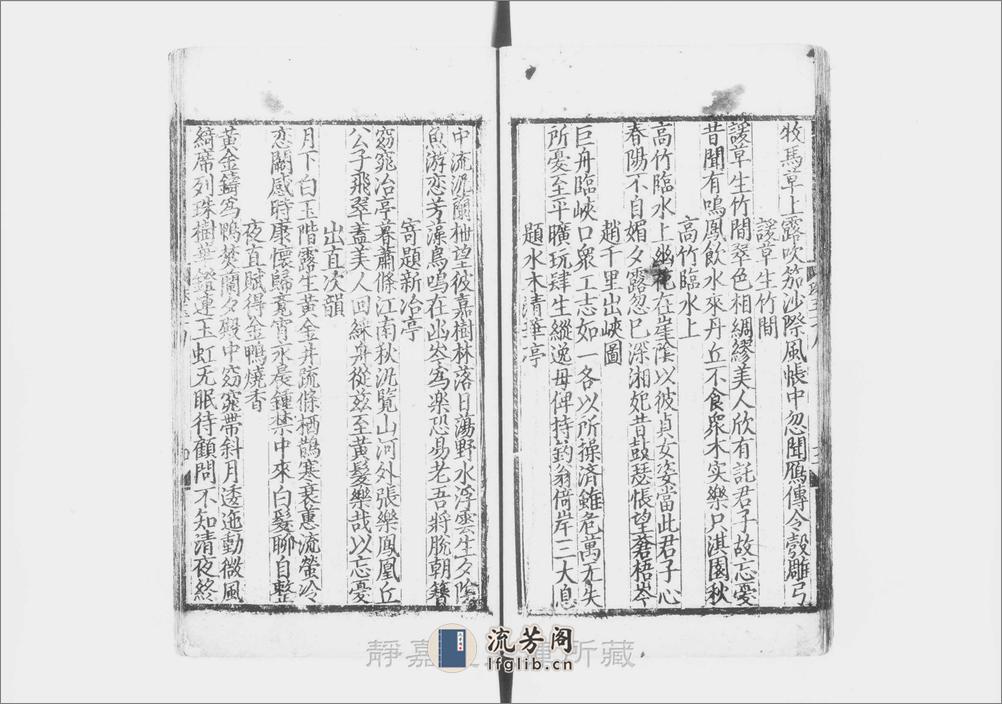 牧馬草上露吹笳沙際風帳中忽聞鴈傳令彀雕弓
諼草生竹間
諼草生竹間翠色相綢繆美人欣有託君子故忘憂
昔聞有鳴鳳飲水來丹丘不食衆木实樂只淇園秋
高竹臨水上
高竹臨水上幽花在崖陰以彼貞女姿當此君子心
春陽不自媚夕露忽已深湘妃昔鼓瑟悵望蒼梧岑
趙千里出峽圖
巨舟臨峽口衆工志如一各以所操済雖危萬无失
所憂至平曠玩肆生縱逸毋俾持釣翁倚岸三大息
題水木清華亭
中流汎蘭枻望彼嘉樹林落日蕩野水浮雲生夕陰
魚游恋芳藻鳥鳴在幽岑為楽恐易老吾將脫朝簪
寄題新冶亭
窈窕冶亭暮蕭條江南秋汎覽山河外張樂鳳凰丘
公子飛翠蓋美人回綵舟從茲至黃髮樂哉以忘憂
出直次韻
月下白玉階露生黃金井疏條栖鵲寒衰蕙流螢冷
恋闕感時康懷歸竟宵永晨鍾禁中來白髮聊自整
夜直賦得金鴨燒香
黃金鑄為鴨焚蘭夕殿中窈窕帶斜月透迤動微風
綺席列珠樹華鐙連玉虹无眠待顧問不知清夜終
靜嘉 所藏
流芳阁
lfglib.cn